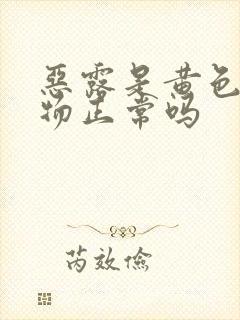 恶露呈黄色
物正常吗
芮效俭